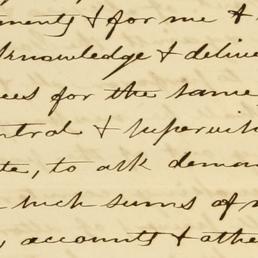 ments & for me &
knowledge & delive
ees for the same
ntrol & supervisi
te, to ask deman
such sums of m
, accounts & othe